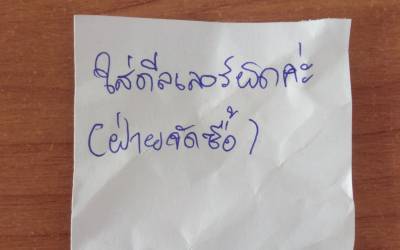 ใส่ดีลเลอร์ผิดค่ะ
(ฝ่ายจัดซื้อ)